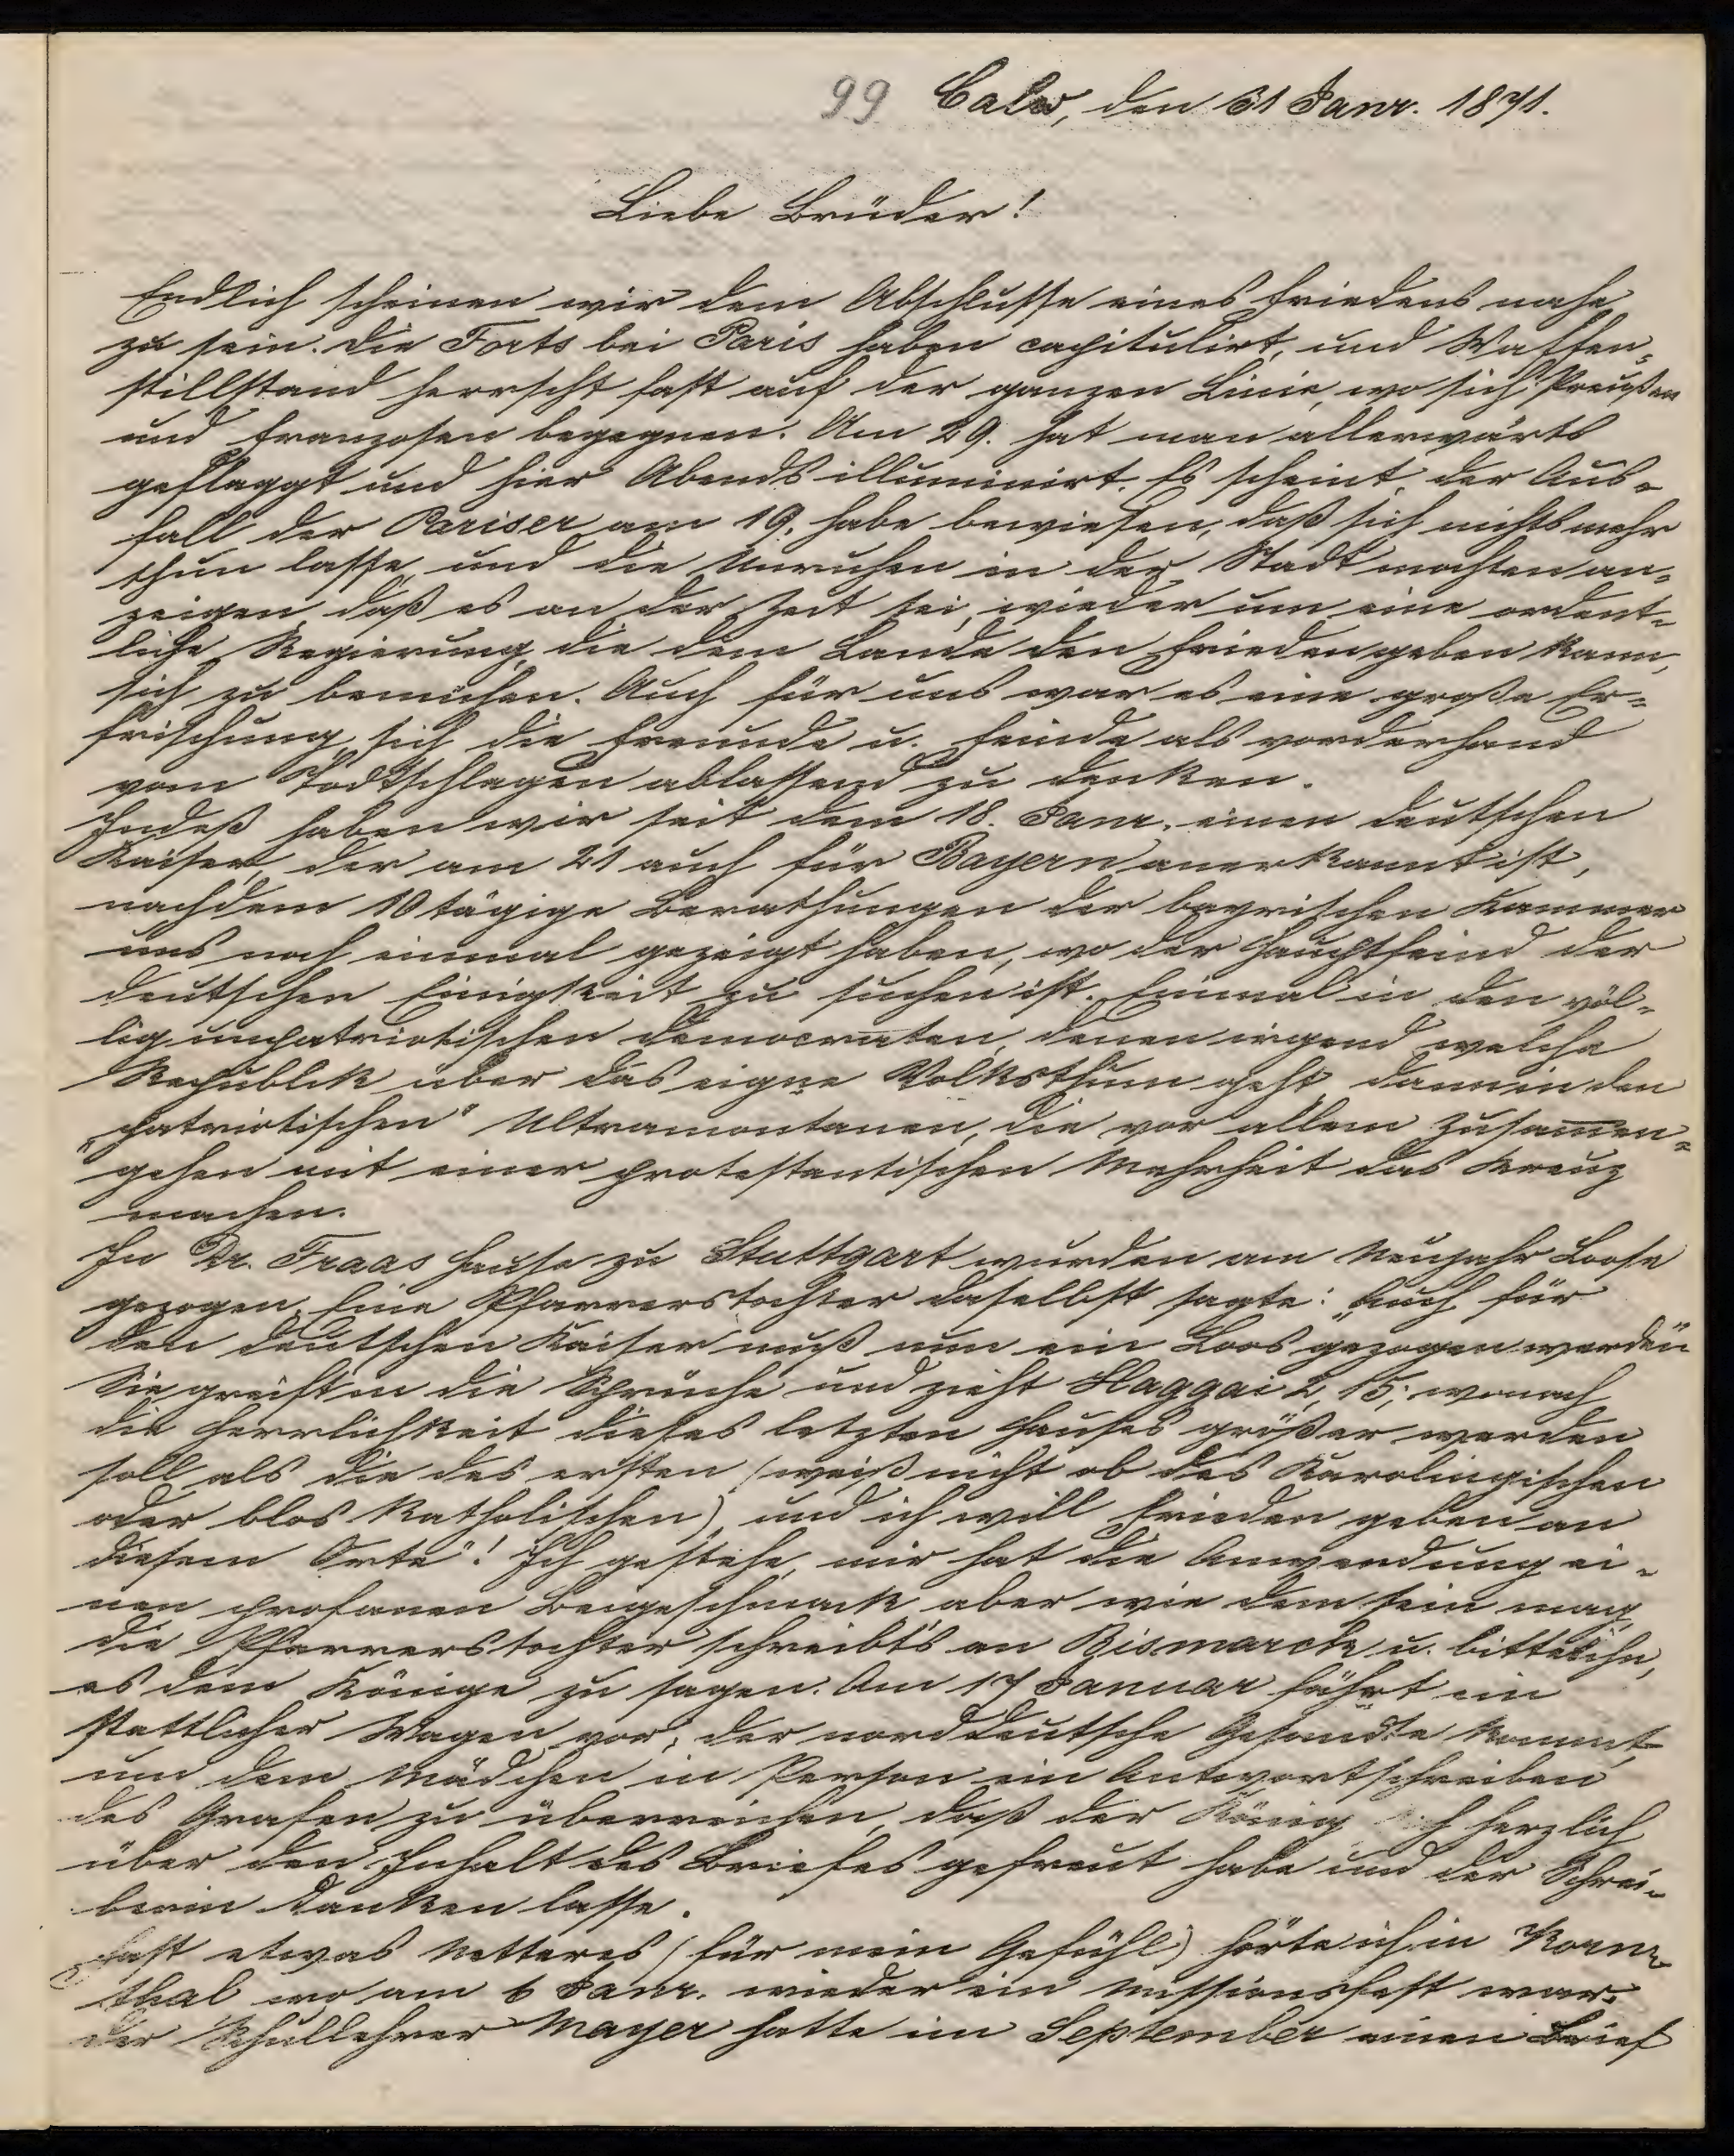 99 Calw, den 31 Janr. 1871.
Liebe Brüder!
Endlich scheinen wir dem Abschlusse eines Friedens nahe
zu sein. Die Forts bei Paris haben capitulirt, und Waffen-
stillstand herrscht fast auf der ganzen Linie, wo sich Preußen
und Franzosen begegnen. Am 29. hat man allerwärts
geflaggt und hier Abends illuminirt. Es scheint, der Aus-
fall der Pariser am 19. habe bewiesen, daß sich nichts mehr
thun lasse, und die Unruhen in der Stadt mochten an-
zeigen, daß es an der Zeit sei, wieder um eine ordent-
liche Regierung, die dem Lande den Frieden geben kann,
sich zu bemühen. Auch für uns war es eine große Er-
frischung, sich die Freunde u. Feinde als vorderhand
vom Todtschlagen ablassend zu denken.
Indeß haben wir seit dem 18. Janr. einen deutschen
Kaiser, der am 21 auch für Bayern anerkannt ist,
nachdem 10 tägige Berathungen der bayrischen Kammer
uns noch einmal gezeigt haben, wo der Hauptfeind der
deutschen Einigkeit zu suchen ist. Einmal in den völ-
lig unpatriotischen Democraten, denen irgend welche
Republik über das eigne Volksthum geht, dann in den
„patriotischen" Ultramontanen, die vor allem Zusammen-
gehen mit einer protestantischen Mehrheit das Kreuz
machen.
In Dr. Fraas Hause zu Stuttgart wurden am Neujahr Loose
gezogen. Eine Pfarrerstochter daselbst sagte: „Auch für
den deutschen Kaiser muß nun ein Loos gezogen werden"
Sie greift in die Sprüche und zieht Haggai 2, 15; wonach
die Herrlichkeit dieses letzten Hauses größer werden
soll als die des ersten (weiß nicht ob des Karolingischen
oder blos Katholischen), und ich will Frieden geben an
diesem Orte"! Ich gestehe, mir hat die Anwendung ei-
nen profanen Beigeschmack aber wie dem sein mag,
die Pfarrerstochter schreibts an Bismarck u. bittet ihn,
es dem Könige zu sagen. Am 17 Januar fährt ein
stattlicher Wagen vor; der norddeutsche Gesandte kommt,
um dem Mädchen in Person ein Antwortschreiben
des Grafen zu überreichen, daß der König herzlich
über den Inhalt des Briefes gefreut habe und der Schrei-
berin danken lasse.
Fast etwas Netteres (für mein Gefühl) hörte ich in Korn-
thal wo am 6 Janr. wieder ein Missionsfest war.
der Schullehrer Mayer hatte im September einen Brief